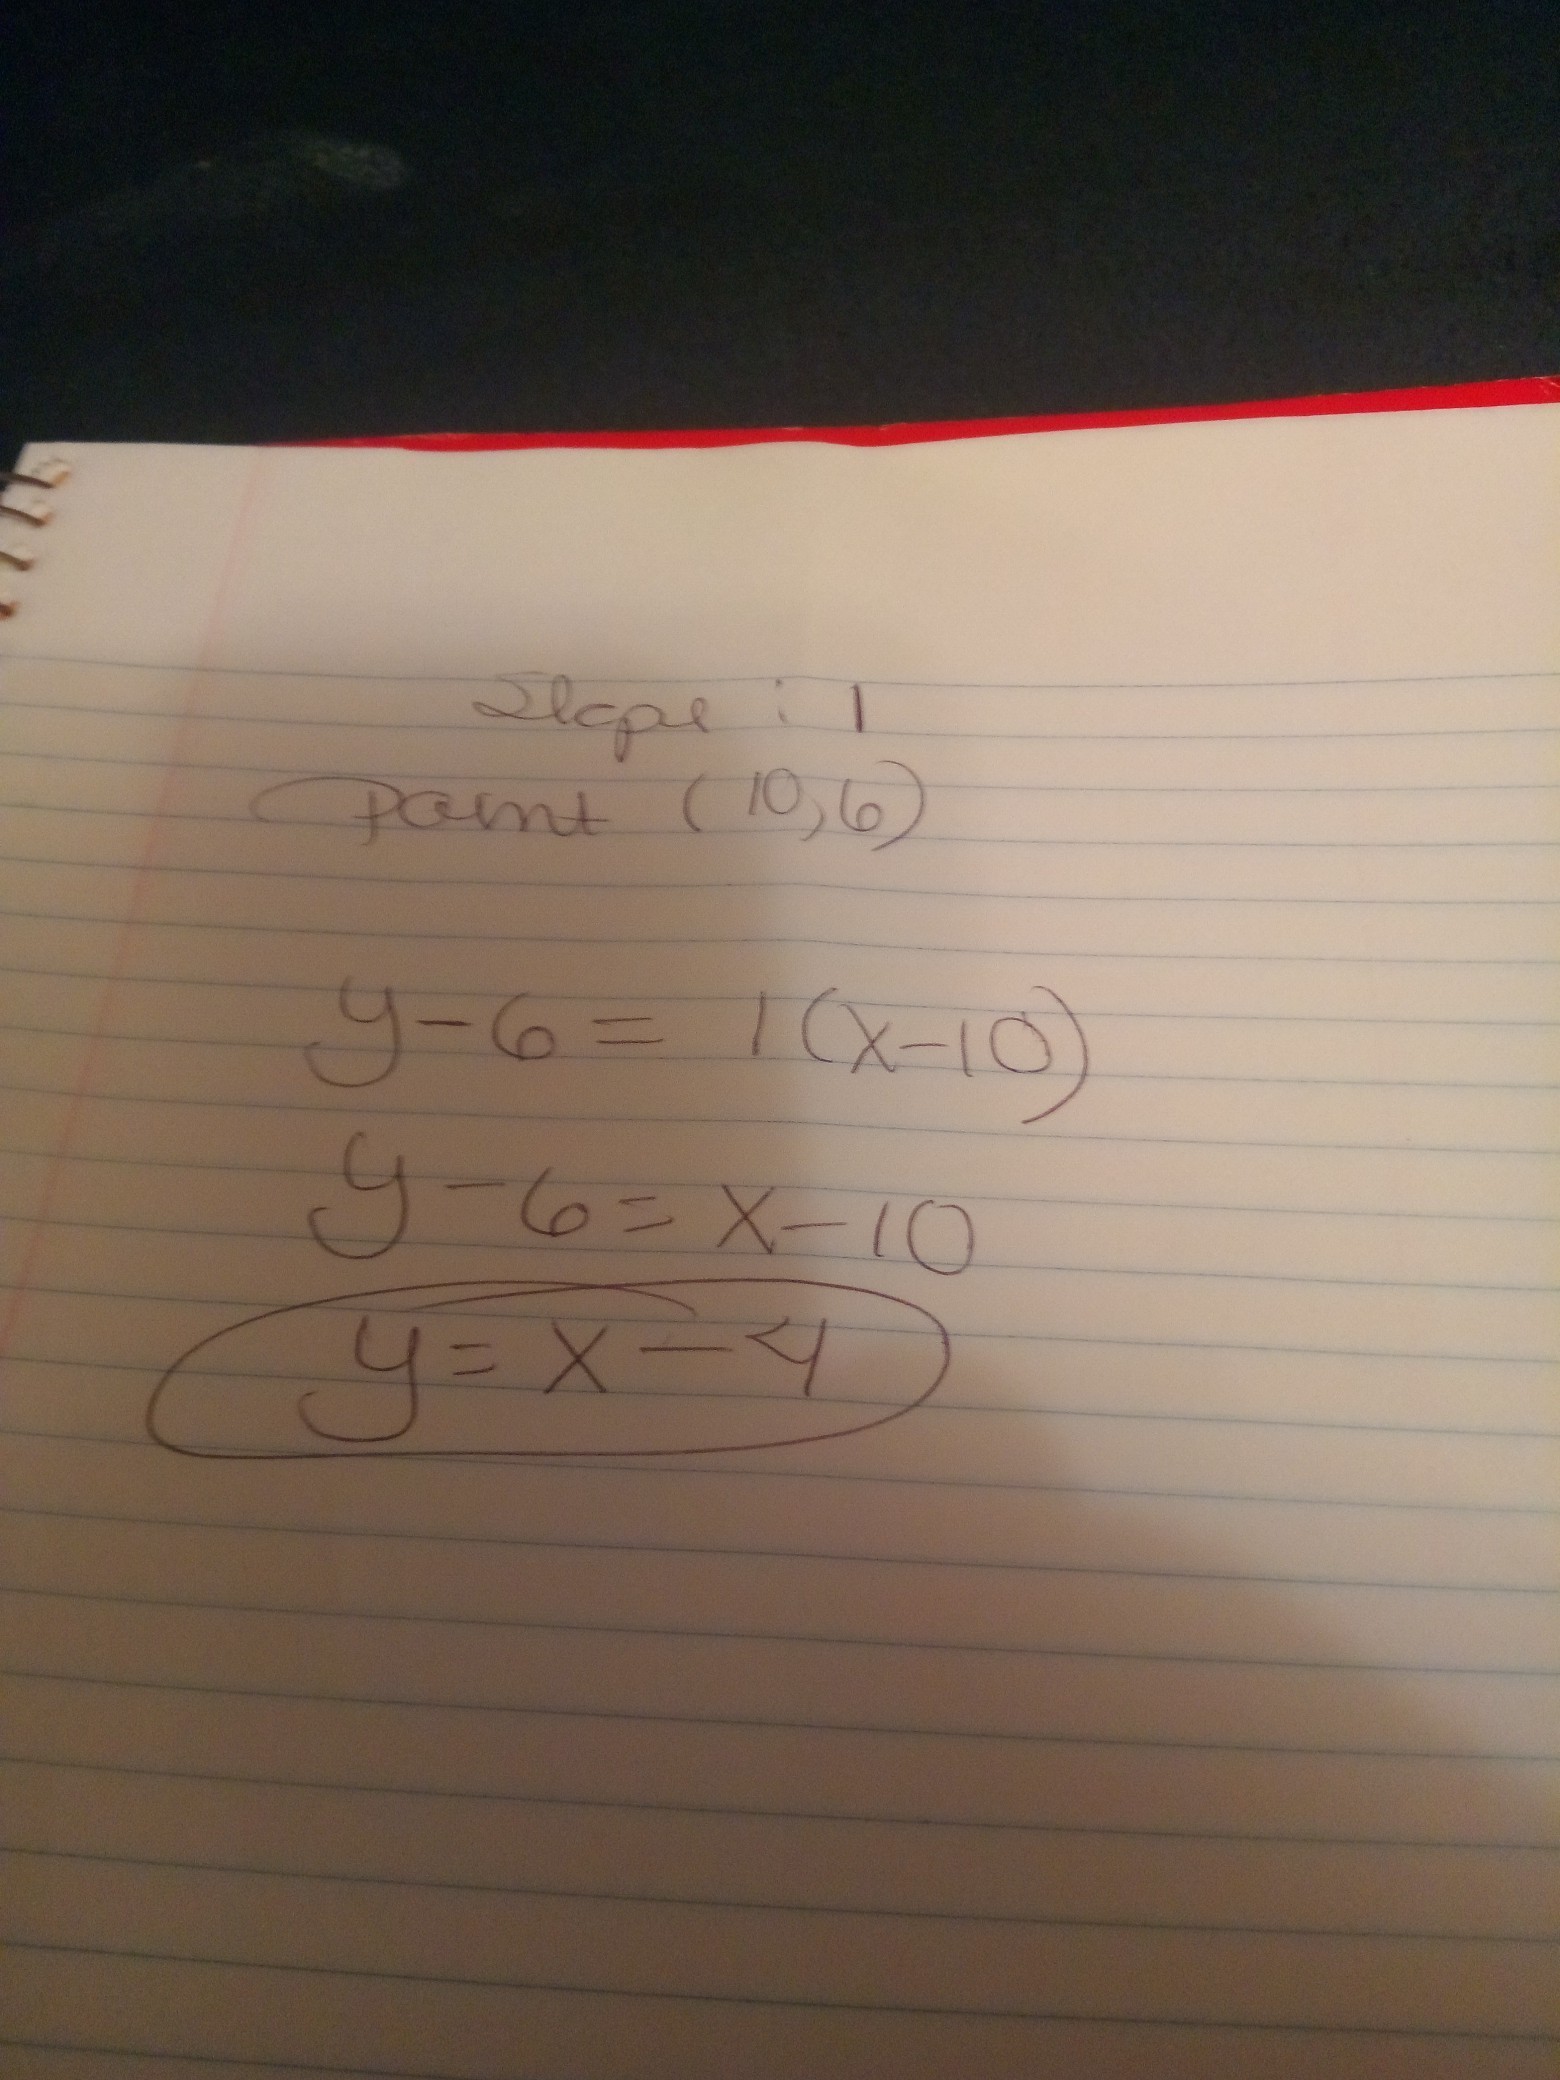 Slope : 1
Point (10,6)
y-6= 1(x-10)
y-6=x-10
y=x-4